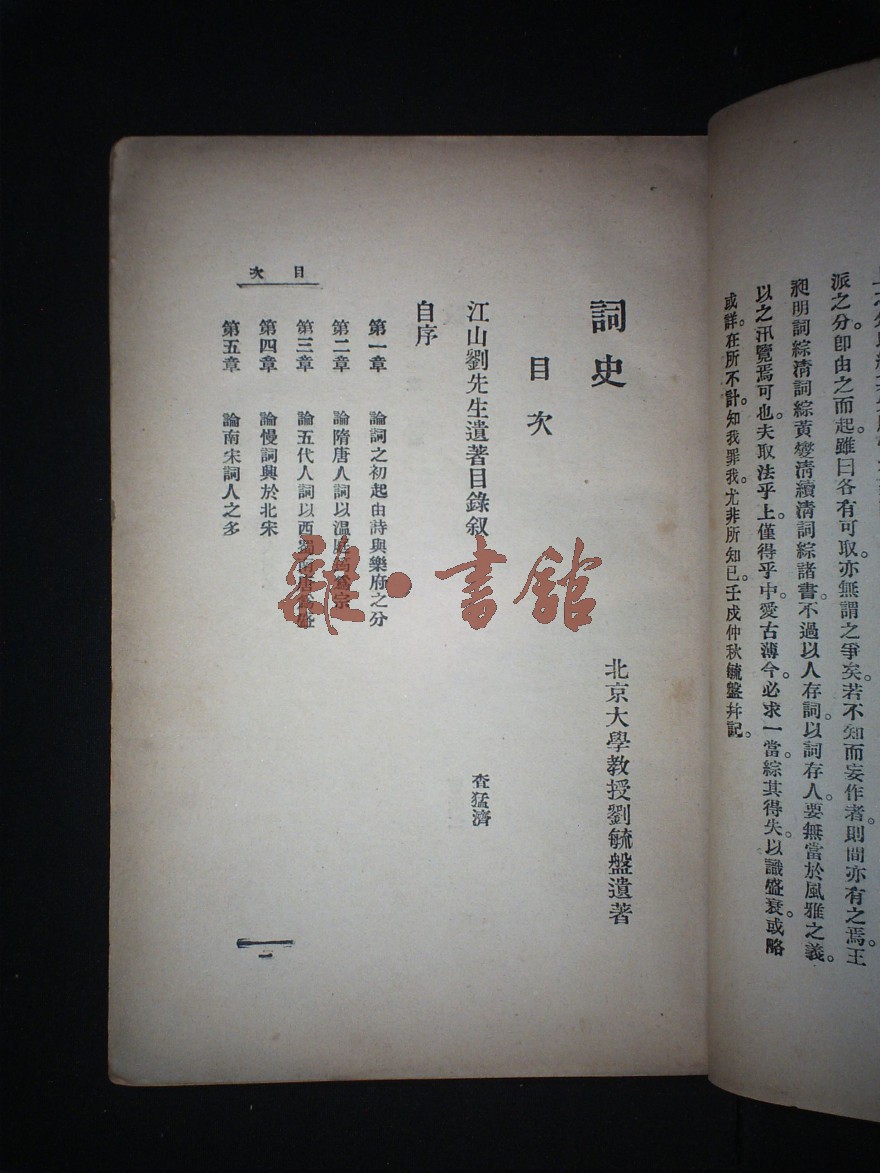 派之分。卽由之而起。雖曰各有可取。亦無謂之爭矣。若不知而妄作者。則間亦有之焉。王
昶明詞綜清詞綜黃燮清續清詞綜諸書。不過以人存詞。以詞存人。要無當於風雅之義。
以之汛覽焉可也。夫取法乎上。僅得乎中。愛古薄今。必求一當。綜其得失。以識盛衰。或略
或詳。在所不計。知我罪我。尤非所知已。壬戌仲秋毓盤幷記。
詞史
北京大學教授劉毓盤遺著
目次
江山劉先生遺著目錄叙
查猛濟
自序
第一章 論詞之初起由詩與樂府之分
第二章 論隋唐人詞以温庭筠爲宗
第三章 論五代人詞以西蜀南唐爲盛
第四章 論慢詞興於北宋
第五章 論南宋詞人之多
目次
一
雜·書館